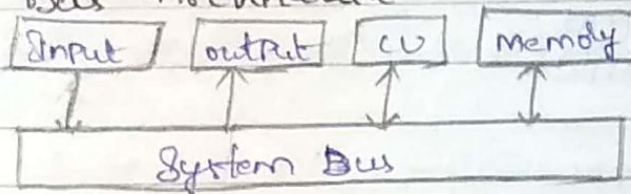 Input output CU Memory
System Bus